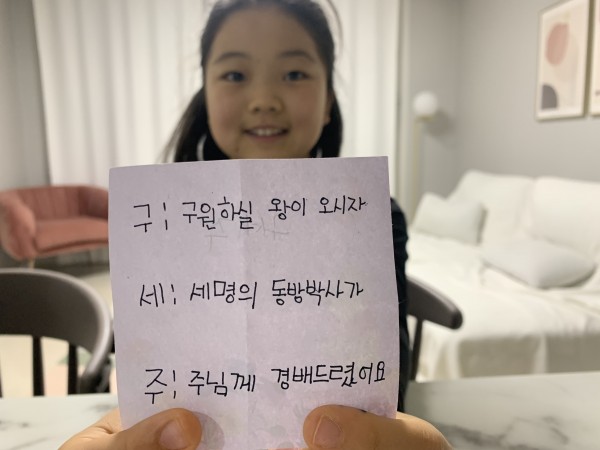 구: 구원하실 왕이 오시자
세: 세명의 동방박사가
주: 주님께 경배드렸어요